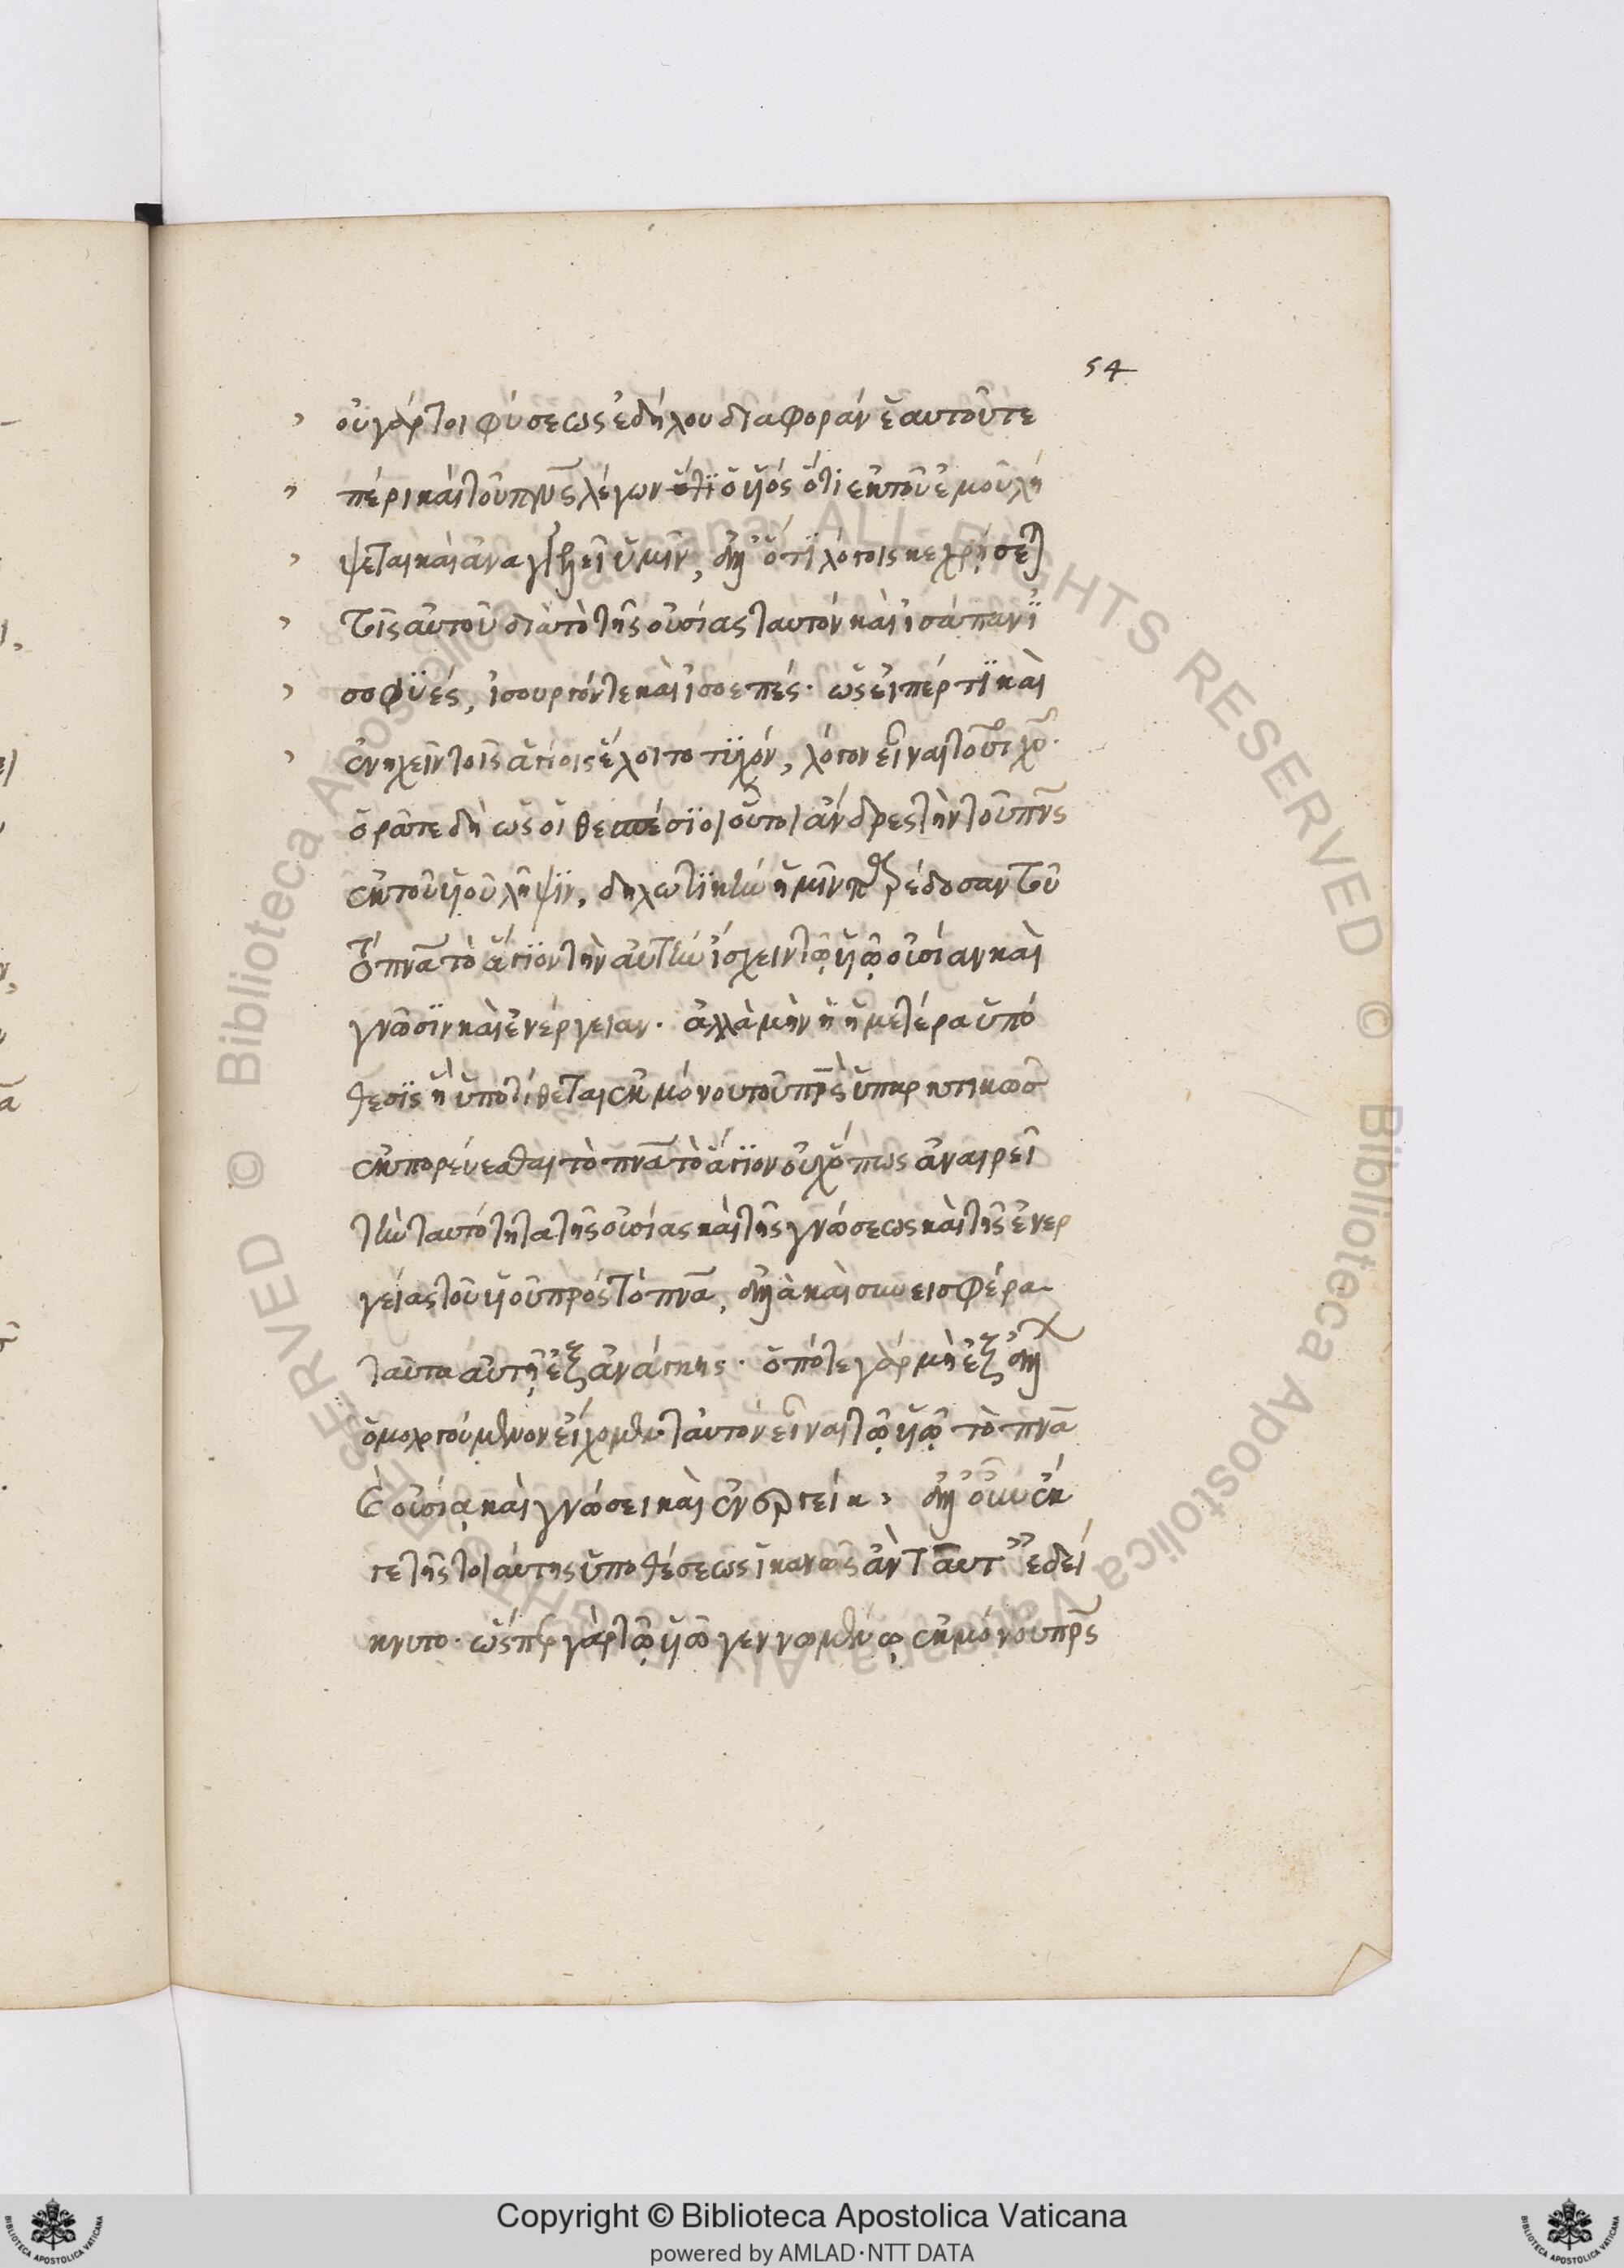 54
οὐ γάρ τοι φύσεως ἐδήλου διαφορὰν ἑαυτοῦ τε
πέρι καὶ τοῦ πν̅ς λέγων ὁ υἱός ὅτι ἐκ τοῦ ἐμοῦ λή
ψεται καὶ ἀναγγελεῖ ὑμῖν, ἀλλ' ὅτι λόγοις κεχρήσεται
τοῖς αὐτοῦ διὰ τὸ τῆς οὐσίας ταυτὸν καὶ ἰσάπαν ἰ
σοφυές, ἰσουργόν τε καὶ ἰσοεπές. ὡς εἴπερ τι καὶ
ἐνηχεῖν τοῖς ἁγίοις ἕλοιτο τυχόν, λόγον εἶναι τοῦτον χῦ.
ὁρᾶτε δὴ ὡς οἱ θεσπέσιοι οὗτοι ἄνδρες τὴν τοῦ πν̅ς
ἐκ τοῦ υἱοῦ λῆψιν, δηλωτικὴν ἡμῖν παρέδοσαν τοῦ
τὸ πν̅α τὸ ἅγιον τὴν αὐτὴν ἴσχειν τῷ υἱῷ οὐσίαν καὶ
γνῶσιν καὶ ἐνέργειαν. ἀλλὰ μὴν ἡ ἡμετέρα ὑπό
θεσις ἣ ὑποτίθεται ἐκ μόνου τοῦ πρ̅ς ὑπαρκτικῶς
ἐκπορεύεσθαι τὸ πν̅α τὸ ἅγιον οὐχ ὅπως ἀναιρεῖ
τὴν ταυτότητα τῆς οὐσίας καὶ τῆς γνώσεως καὶ τῆς ἐνερ
γείας τοῦ υἱοῦ πρὸς τὸ πν̅α, ἀλλὰ καὶ συνεισφέρει
ταῦτα αὐτῇ ἐξ ἀνάγκης. ὁπότε γὰρ μὴ ἐξ ἄλλων
ὁμολογούμενον εἴχομεν ταυτὸν εἶναι τῷ υἱῷ τὸ πν̅α
ἐν οὐσίᾳ καὶ γνώσει καὶ ἐνεργείᾳ, ἀλλ' οὖν ἔκ
γε τῆς τοιαύτης ὑποθέσεως ἱκανῶς ἂν ταῦτ' ἐδεί
κνυτο. ὥσπερ γὰρ τῷ υἱῷ γεννωμένῳ ἐκ μόνου πρ̅ς
Copyright © Biblioteca Apostolica Vaticana
powered by AMLAD·NTT DATA